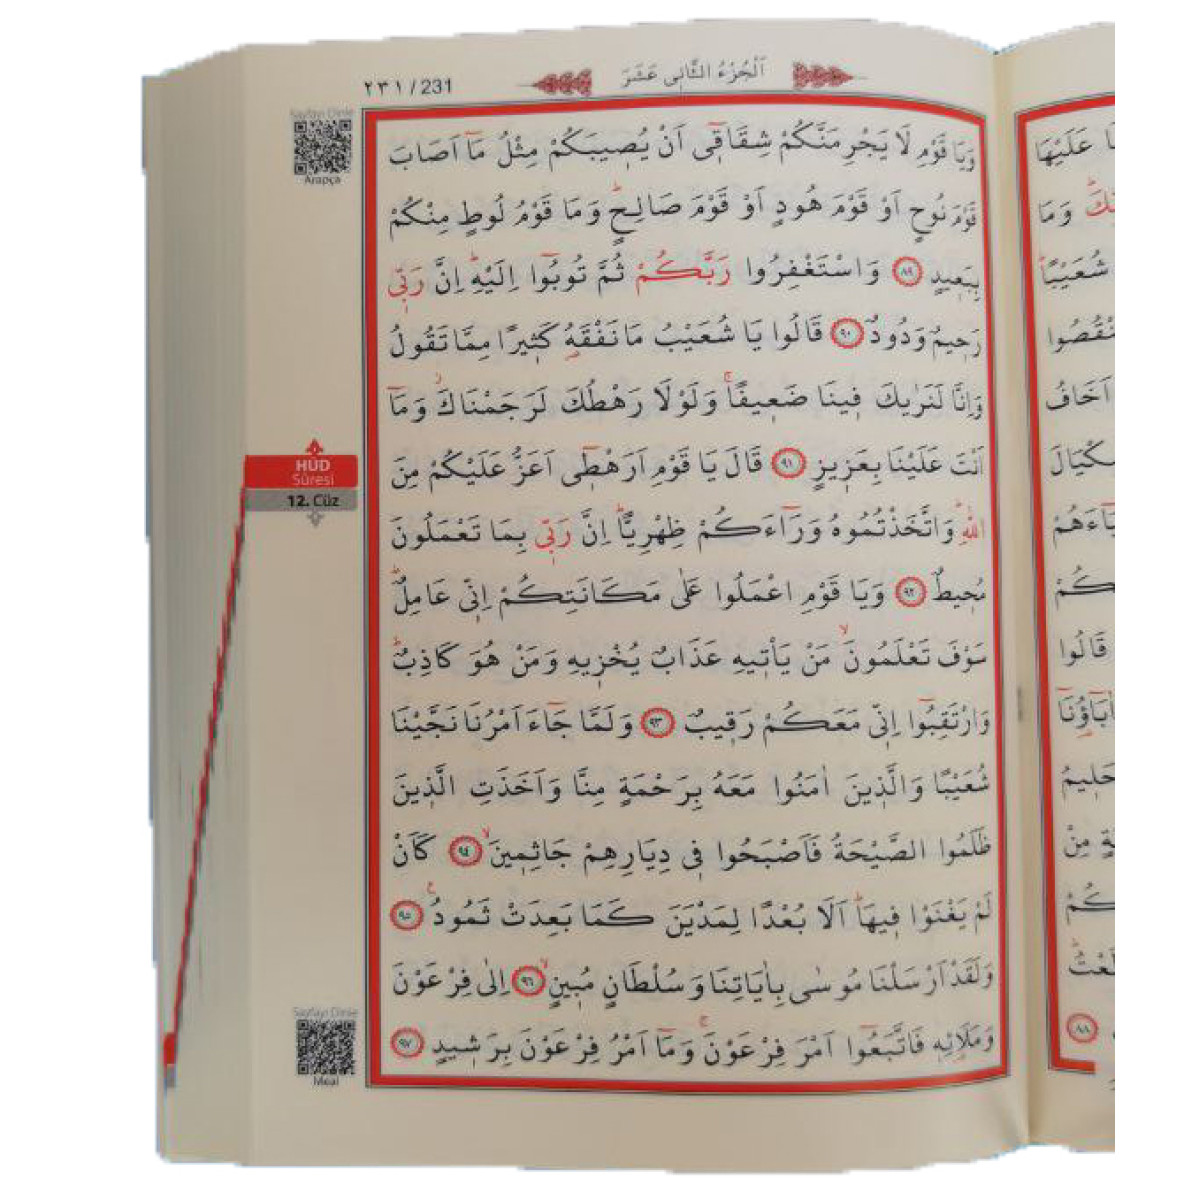 ٢٣١ / 231
اَلْجُزْءُ الثَّانِى عَشَرَ
Sayfayı Dinle
Arapça
وَيَا قَوْمِ لَا يَجْرِمَنَّكُمْ شِقَاقٓى اَنْ يُصٖيبَكُمْ مِثْلُ مَٓا اَصَابَ
قَوْمَ نُوحٍ اَوْ قَوْمَ هُودٍ اَوْ قَوْمَ صَالِحٍؕ وَمَا قَوْمُ لُوطٍ مِنْكُمْ
بِبَعٖيدٍ ٨٩ وَاسْتَغْفِرُوا رَبَّكُمْ ثُمَّ تُوبُٓوا اِلَيْهِؕ اِنَّ رَبّٖى
رَحٖيمٌ وَدُودٌ ٩٠ قَالُوا يَا شُعَيْبُ مَا نَفْقَهُ كَثٖيرًا مِمَّا تَقُولُ
وَاِنَّا لَنَرٰيكَ فٖينَا ضَعٖيفًاۚ وَلَوْلَا رَهْطُكَ لَرَجَمْنَاكَؗ وَمَٓا
اَنْتَ عَلَيْنَا بِعَزٖيزٍ ٩١ قَالَ يَا قَوْمِ اَرَهْطٖٓى اَعَزُّ عَلَيْكُمْ مِنَ
اللّٰهِؕ وَاتَّخَذْتُمُوهُ وَرَٓاءَكُمْ ظِهْرِيًّاؕ اِنَّ رَبّٖى بِمَا تَعْمَلُونَ
مُحٖيطٌ ٩٢ وَيَا قَوْمِ اعْمَلُوا عَلٰى مَكَانَتِكُمْ اِنّٖى عَامِلٌؕ
سَوْفَ تَعْلَمُونَۙ مَنْ يَاْتٖيهِ عَذَابٌ يُخْزٖيهِ وَمَنْ هُوَ كَاذِبٌؕ
وَارْتَقِبُٓوا اِنّٖى مَعَكُمْ رَقٖيبٌ ٩٣ وَلَمَّا جَٓاءَ اَمْرُنَا نَجَّيْنَا
شُعَيْبًا وَالَّذٖينَ اٰمَنُوا مَعَهُ بِرَحْمَةٍ مِنَّا وَاَخَذَتِ الَّذٖينَ
ظَلَمُوا الصَّيْحَةُ فَاَصْبَحُوا فٖى دِيَارِهِمْ جَاثِمٖينَۙ ٩٤ كَاَنْ
لَمْ يَغْنَوْا فٖيهَاؕ اَلَا بُعْدًا لِمَدْيَنَ كَمَا بَعِدَتْ ثَمُودُ ٩٥
وَلَقَدْ اَرْسَلْنَا مُوسٰى بِاٰيَاتِنَا وَسُلْطَانٍ مُبٖينٍۙ ٩٦ اِلٰى فِرْعَوْنَ
وَمَلَا۬ئِهٖ فَاتَّبَعُٓوا اَمْرَ فِرْعَوْنَۚ وَمَٓا اَمْرُ فِرْعَوْنَ بِرَشٖيدٍ ٩٧
HÛD
Sûresi
12. Cüz
Sayfayı Dinle
Meal
عَلَيْهَا
وَمَا
شُعَيْبًاؕ
اَخَافُ
قَالُوا
مِنْ
٨٨